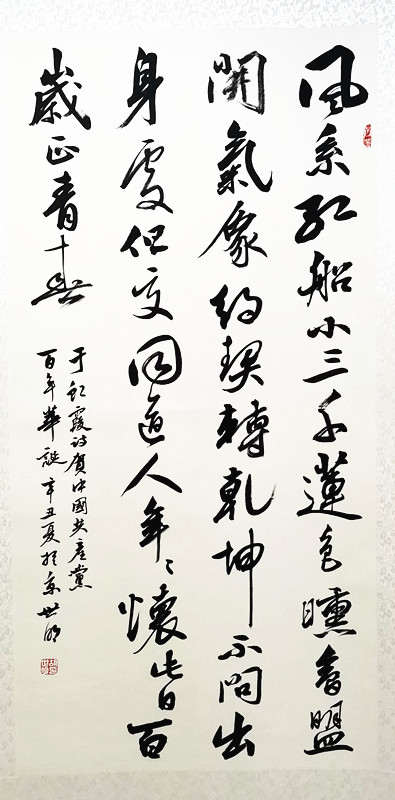 風系紅船小三千蓮色曛香盟
開氣象約契轉乾坤不問出
身處但交同道人年々懷此日百
歲正青春
于紅霞詩賀中國共產黨
百年華誕辛丑夏於京世明